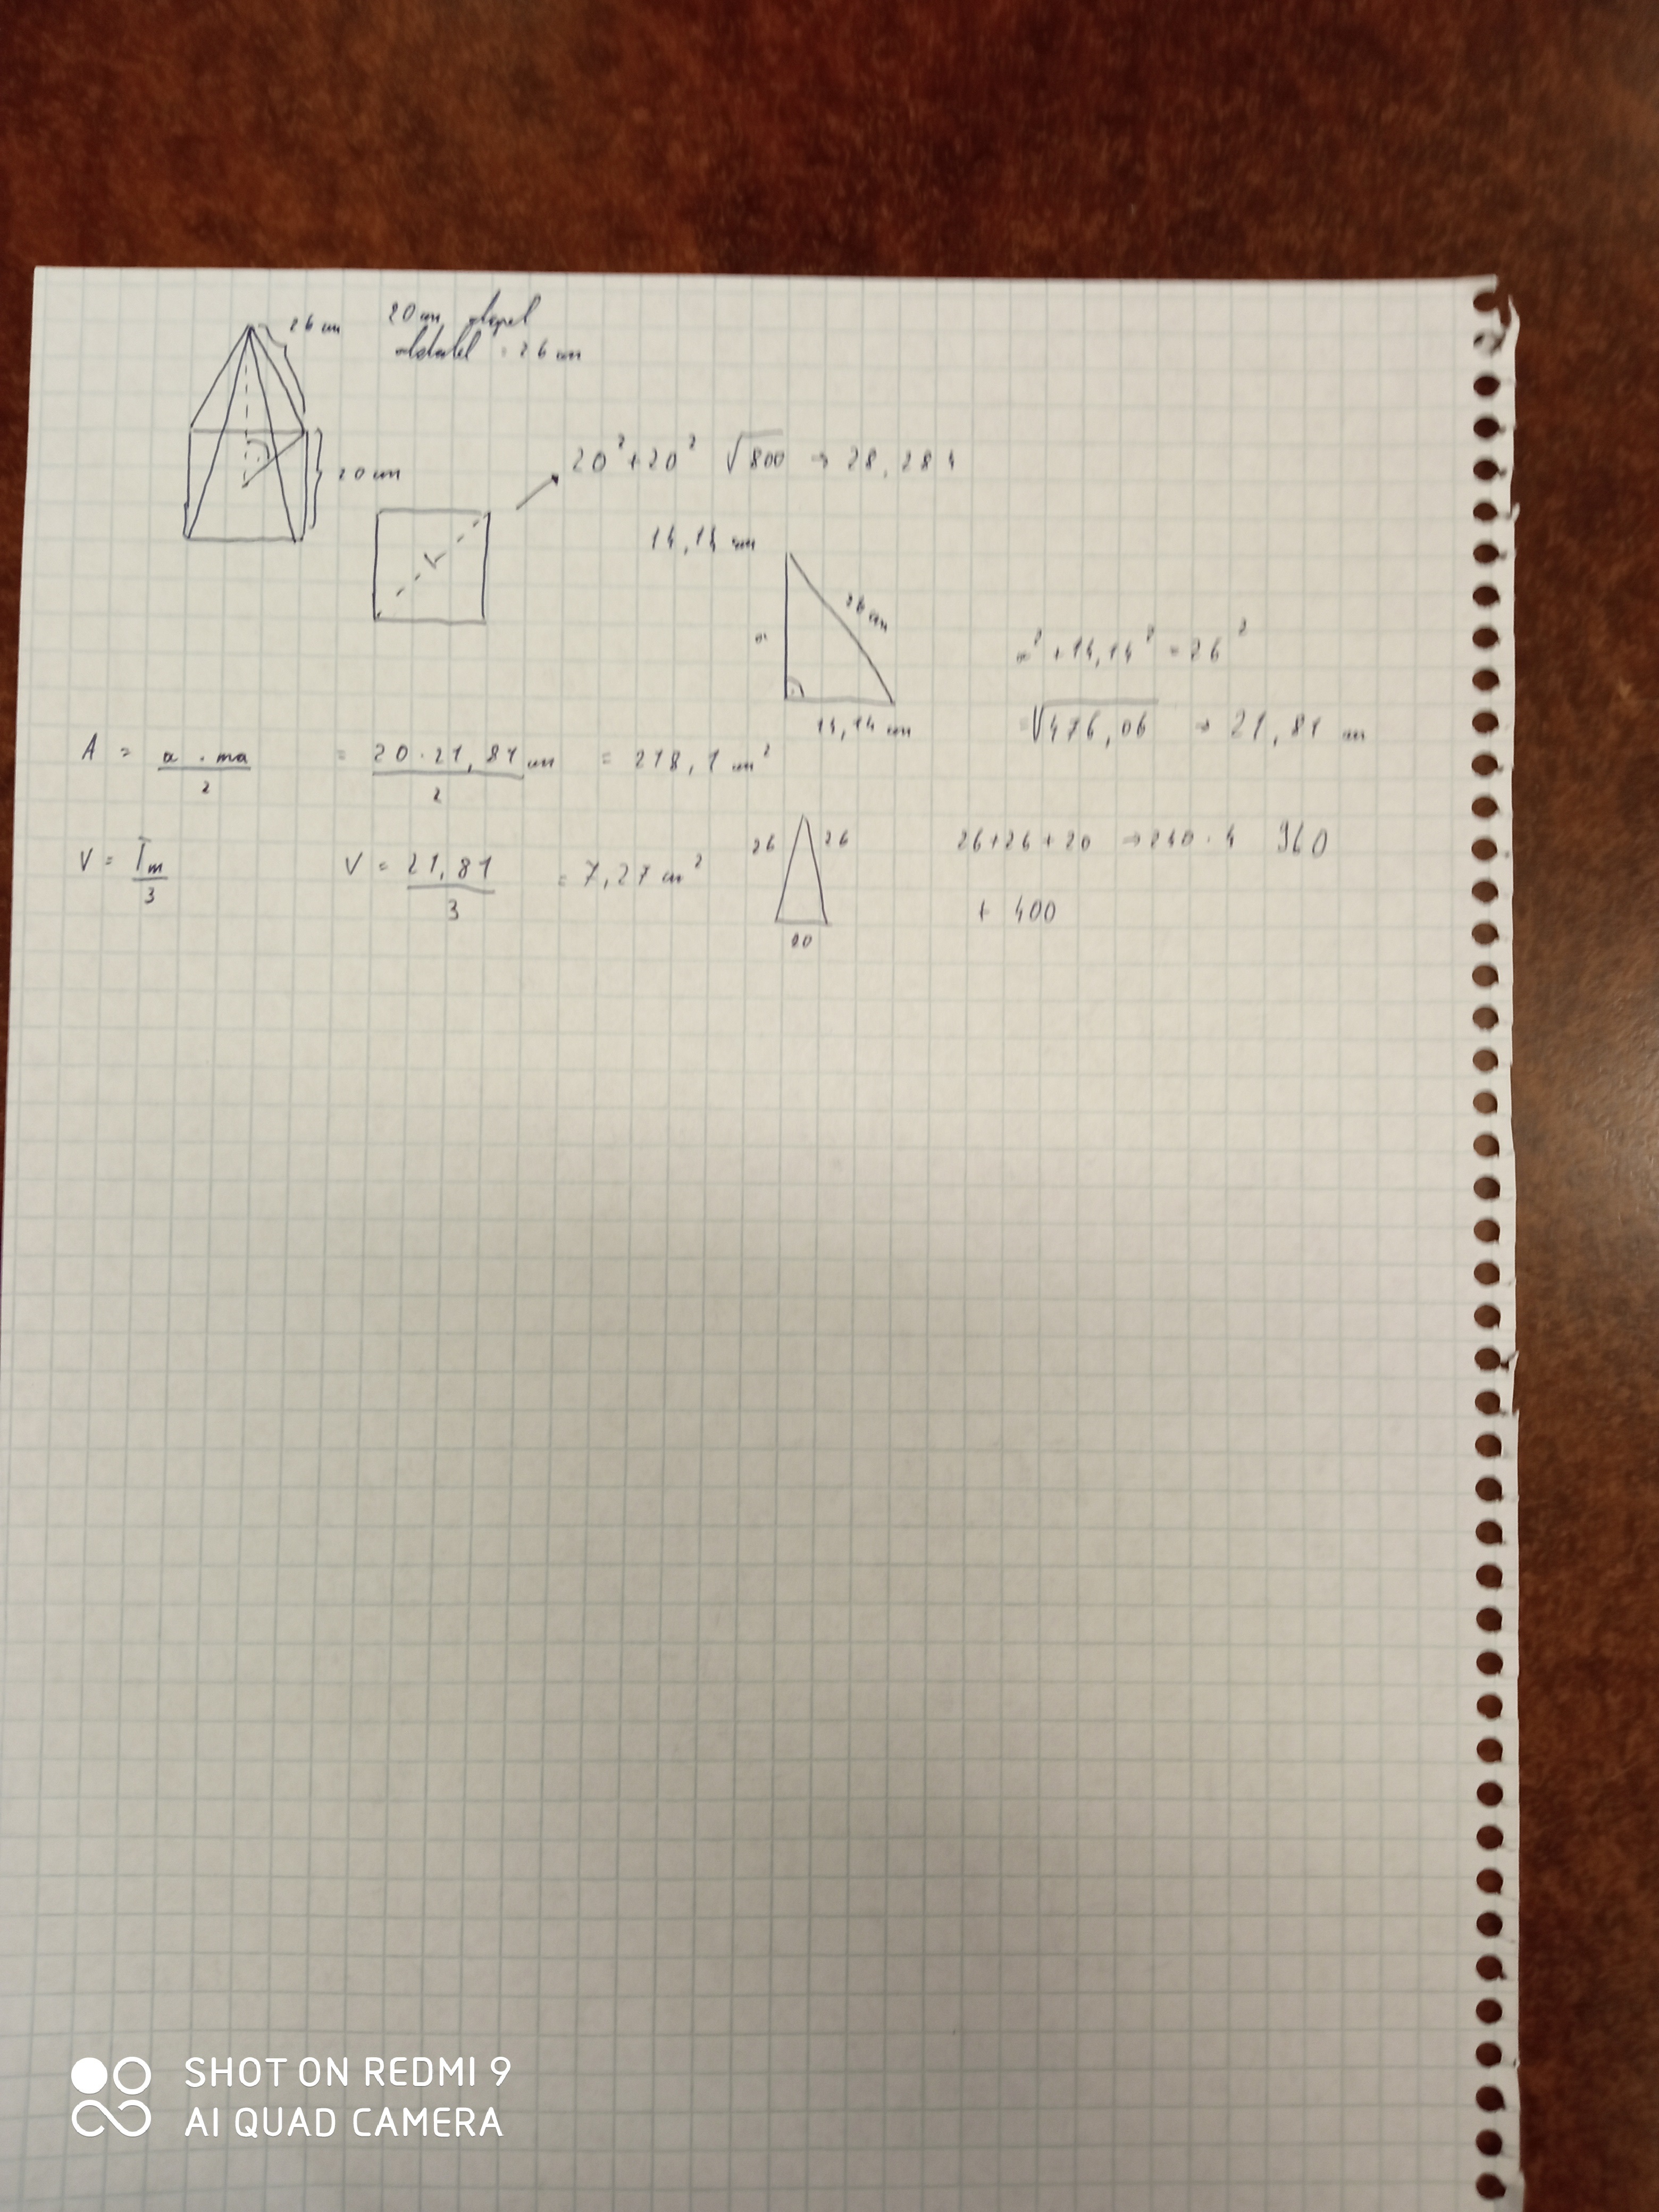 26 cm
20 cm alapél
oldalél = 26 cm
20 cm
20² + 20² √800 → 28,284
14,14 cm
26 cm
a
14,14 cm
a² + 14,14² = 26²
= √476,06 → 21,81 cm
A = a · ma / 2 = 20 · 21,81 cm / 2 = 218,1 cm²
V = Tm / 3 V = 21,81 / 3 = 7,27 cm²
26 26
20
26+26+20 → 240 · 4 960
+ 400
SHOT ON REDMI 9
AI QUAD CAMERA